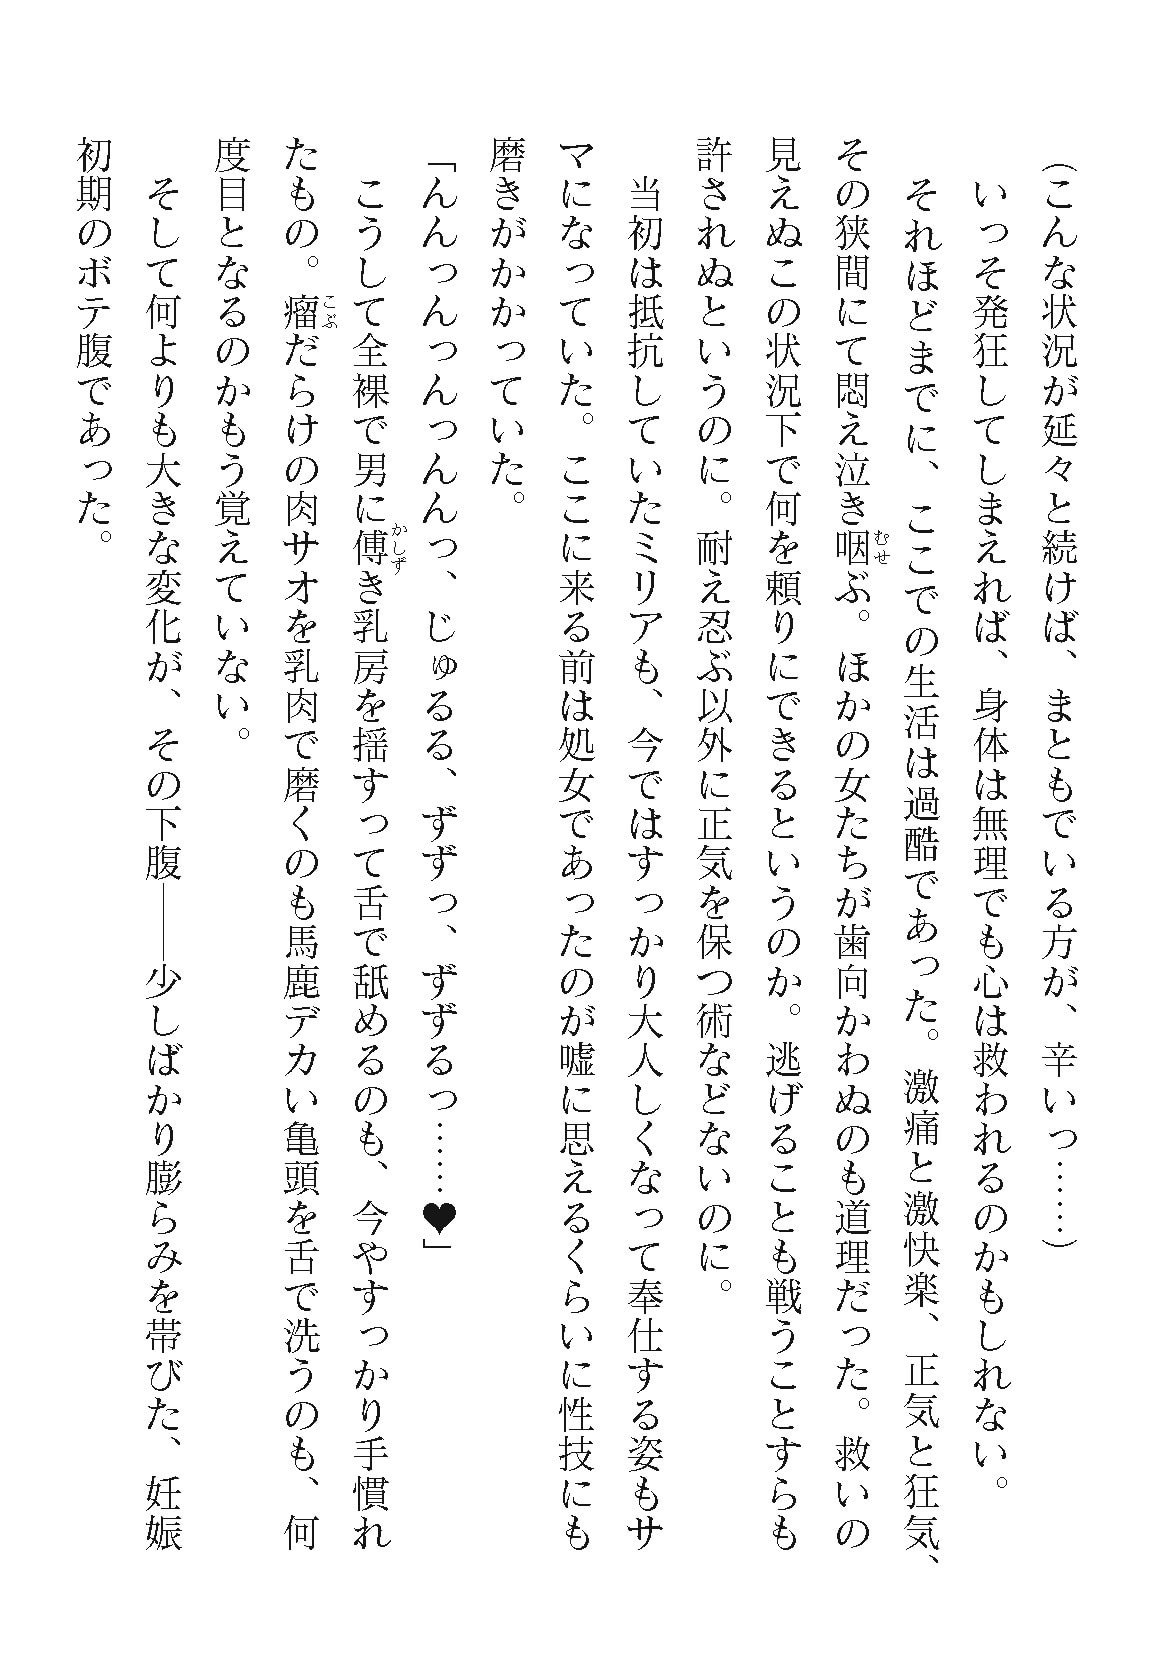 （こんな状況が延々と続けば、まともでいる方が、辛いっ……）
いっそ発狂してしまえれば、身体は無理でも心は救われるのかもしれない。
それほどまでに、ここでの生活は過酷であった。激痛と激快楽、正気と狂気、
その狭間にて悶え泣き咽ぶ。ほかの女たちが歯向かわぬのも道理だった。救いの
見えぬこの状況下で何を頼りにできるというのか。逃げることも戦うことすらも
許されぬというのに。耐え忍ぶ以外に正気を保つ術などないのに。
当初は抵抗していたミリアも、今ではすっかり大人しくなって奉仕する姿もサ
マになっていた。ここに来る前は処女であったのが嘘に思えるくらいに性技にも
磨きがかかっていた。
「んんっんっんっんんっ、じゅるる、ずずっ、ずずるっ……♥」
こうして全裸で男に傅き乳房を揺すって舌で舐めるのも、今やすっかり手慣れ
たもの。瘤だらけの肉サオを乳肉で磨くのも馬鹿デカい亀頭を舌で洗うのも、何
度目となるのかもう覚えていない。
そして何よりも大きな変化が、その下腹――少しばかり膨らみを帯びた、妊娠
初期のボテ腹であった。